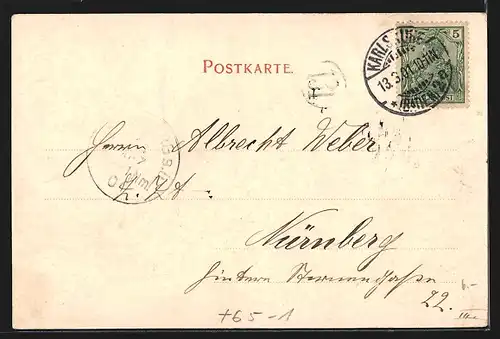 5
KARLSRUHE
13.3.01.
*(BADEN) 2.
POSTKARTE.
Herrn Albrecht Weber
Nürnberg
hintere Sterngasse
22.
+65-1